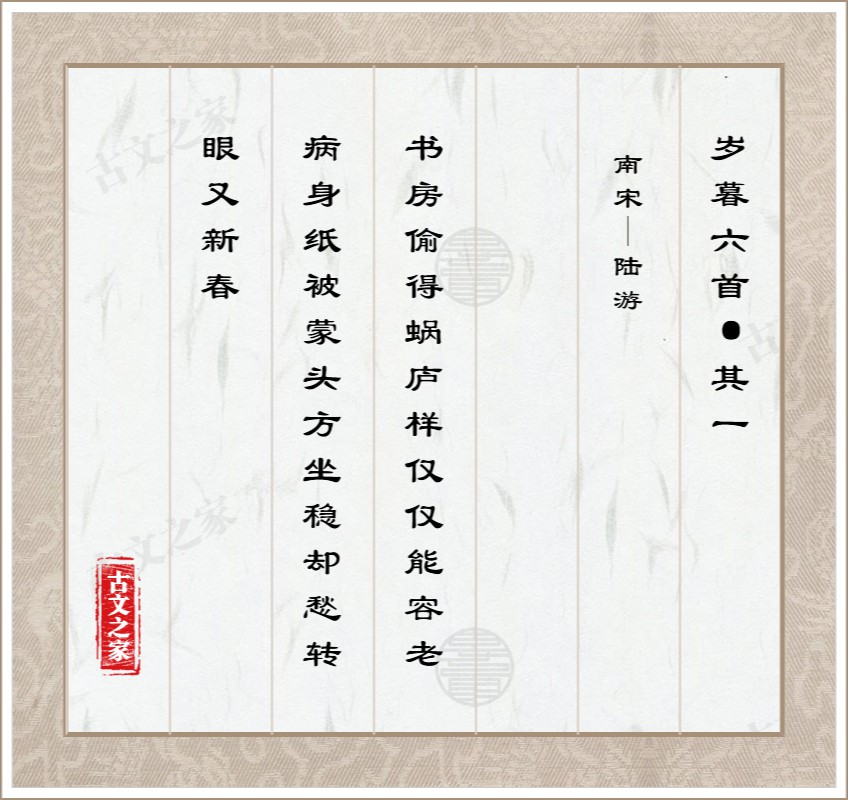 岁暮六首●其一
南宋—陆游
书房偷得蜗庐样仅仅能容老
病身纸被蒙头方坐稳却愁转
眼又新春
古文之家
古文之家
古文之家